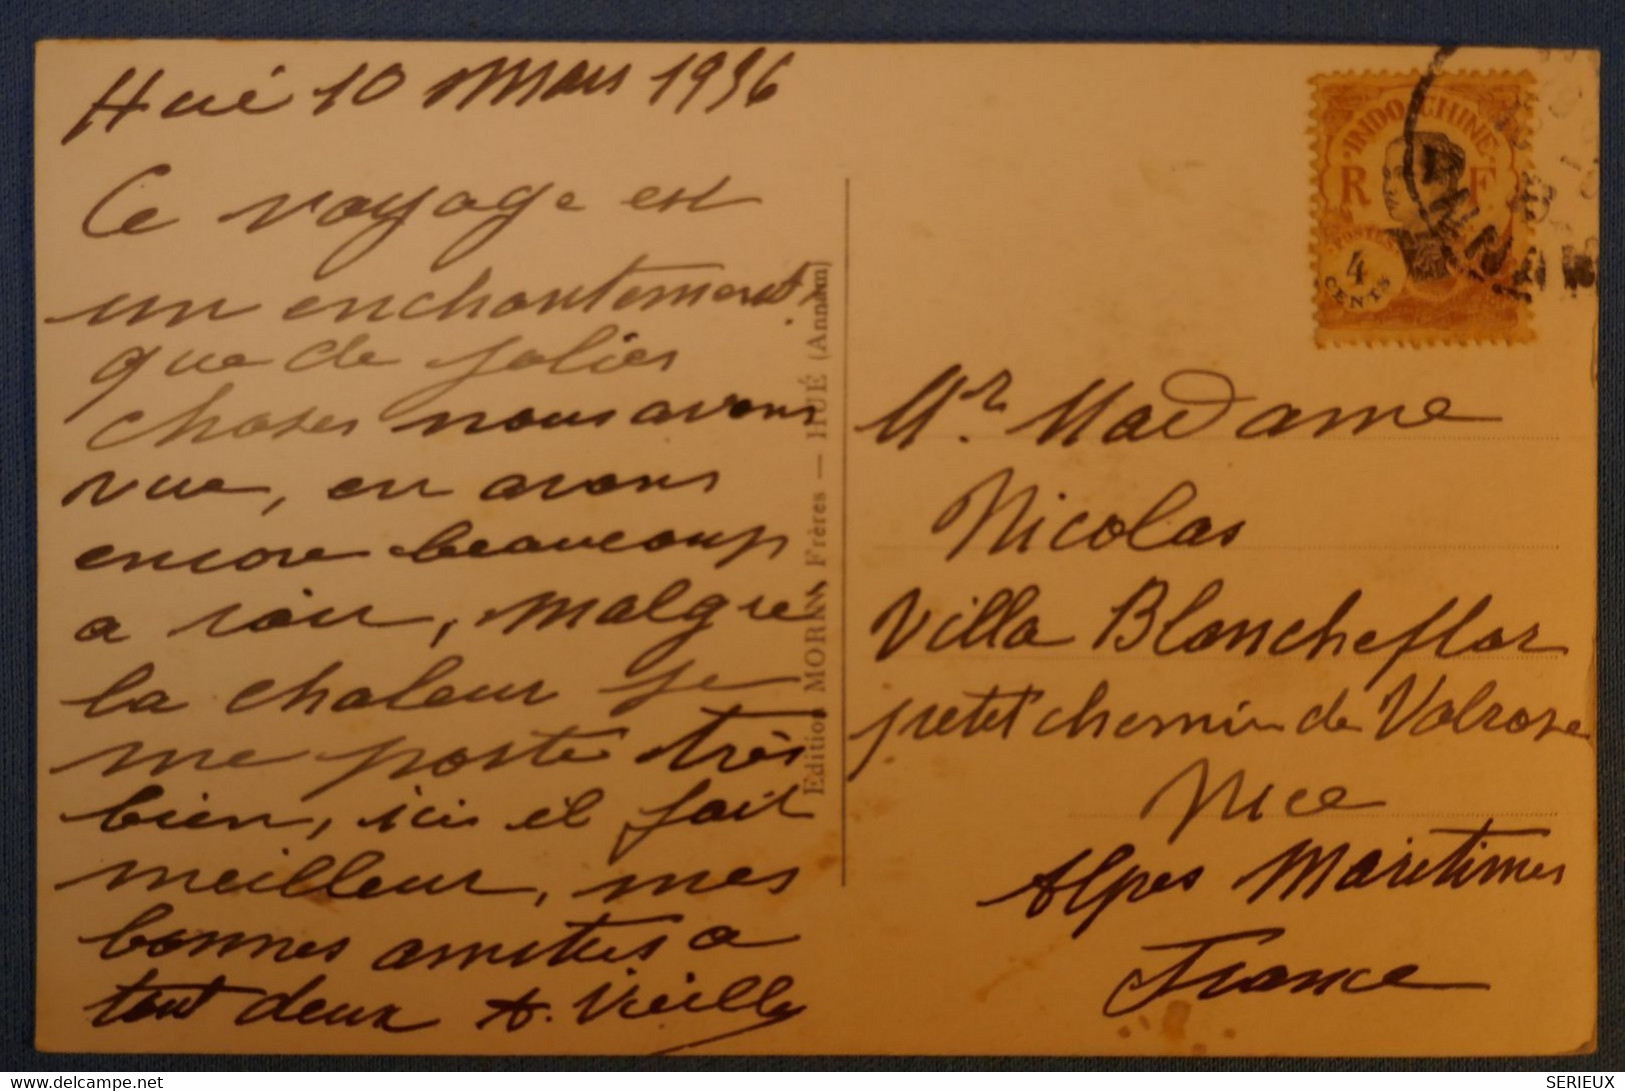 Hué 10 Mars 1936
Ce voyage est
un enchantement,
que de jolies
choses nous avons
vue, en avons
encore beaucoup
a voir, Malgre
la chaleur je
me porte très
bien, ici il fait
meilleur, mes
bonnes amities a
tout deux A. Vieilly
Edition MORIN Frères — HUÉ (Annam)
INDO-CHINE
R F
POSTES
4
CENTS
Mr. Madame
Nicolas
Villa Blancheflor
petit chemin de Valrose
Nice
Alpes Maritimes
France
www.delcampe.net
SERIEUX